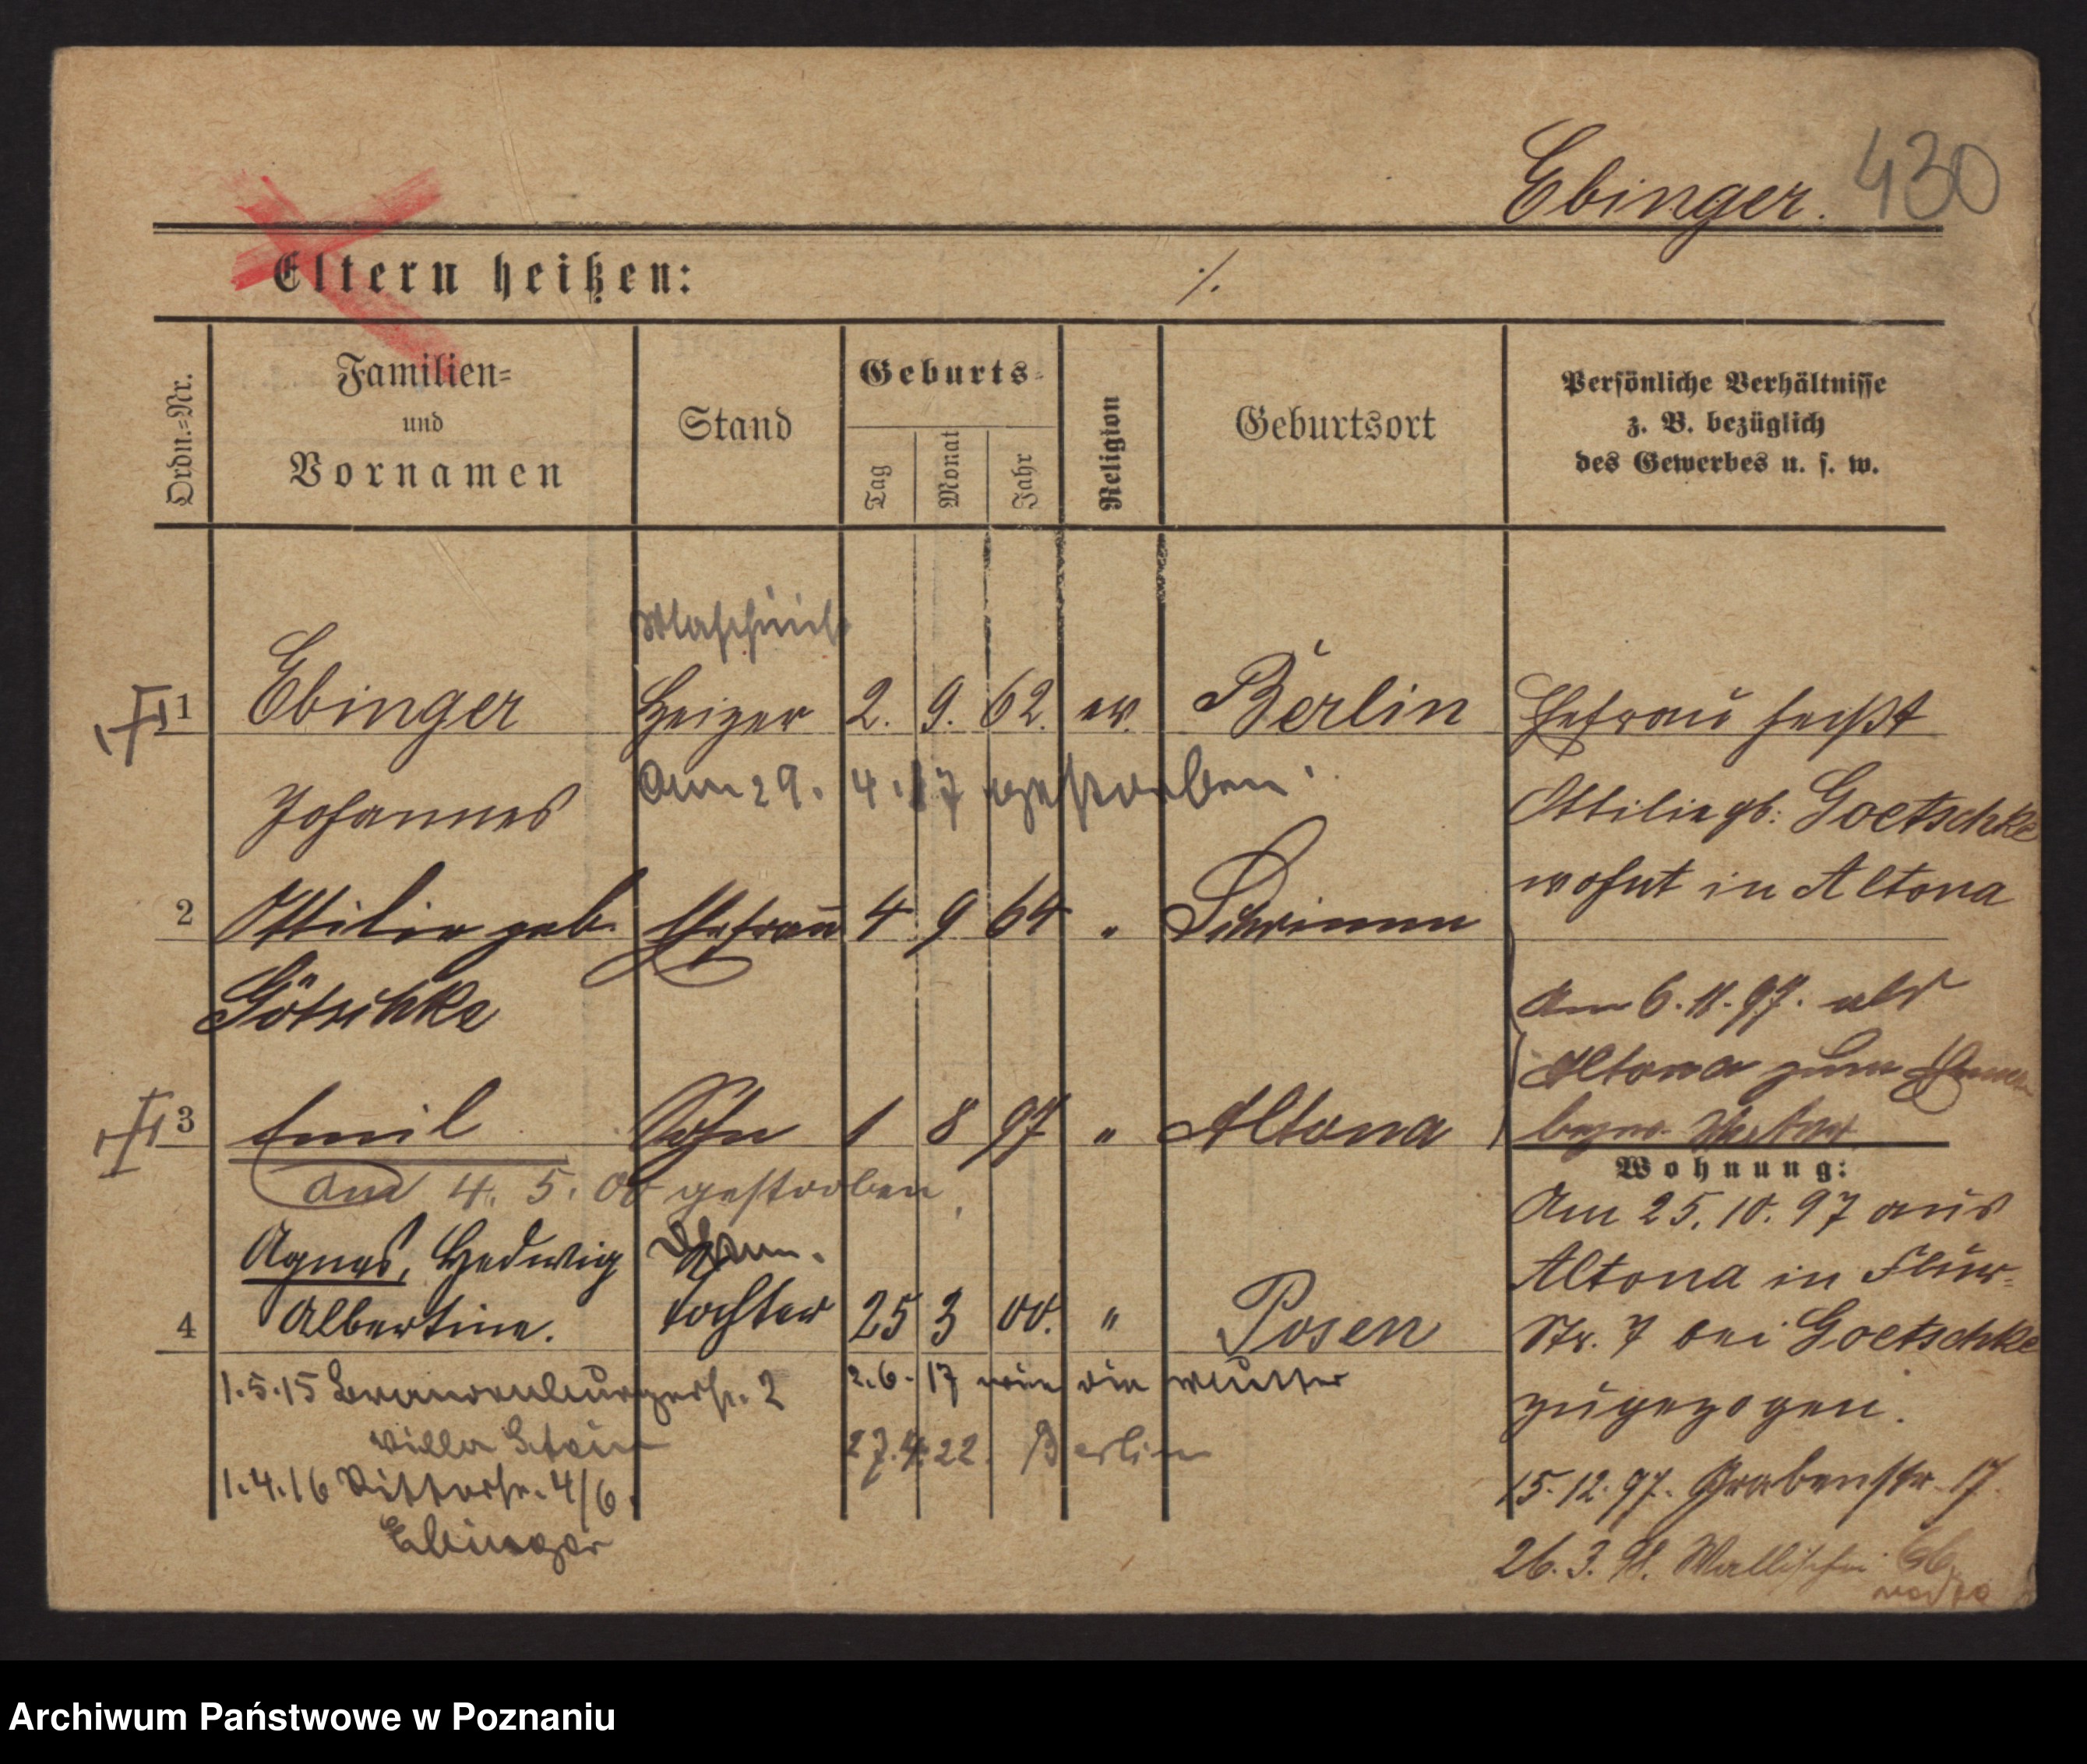 Ebinger. 430
Eltern heißen: ./.
Ordn.=Nr.
Familien=
und
Vornamen
Stand
Geburts=
Tag
Monat
Jahr
Religion
Geburtsort
Persönliche Verhältnisse
z. B. bezüglich
des Gewerbes u. s. w.
Maschinist
1 Ebinger Heizer 2. 9. 62. ev. Berlin
Johannes
Am 29. 4. 17 gestorben.
2 Ottilie geb. Ehefrau 4 9 64 " Schrimm
Götschke
3 Emil Sohn 1 8 97 " Altona
Am 4. 5. 00 gestorben.
Agnes, Hedwig
4 Albertine. Tochter 25 3 00. " Posen
1.5.15 Brandenburgerstr. 2
Villa Stein
1.4.16 Ritterstr. 4/6.
Ebinger
2.6.17 wie die Mutter
27.4.22. Berlin
Ehefrau heißt
Ottilie gb: Goetschke
wohnt in Altona
Am 6. 11. 97. als
Altona zum
Wohnung:
Am 25. 10. 97 aus
Altona in Flur-
Str. 7 bei Goetschke
zugezogen.
15. 12. 97. Grabenstr. 17.
26. 3. 98. Wallischei
Archiwum Państwowe w Poznaniu